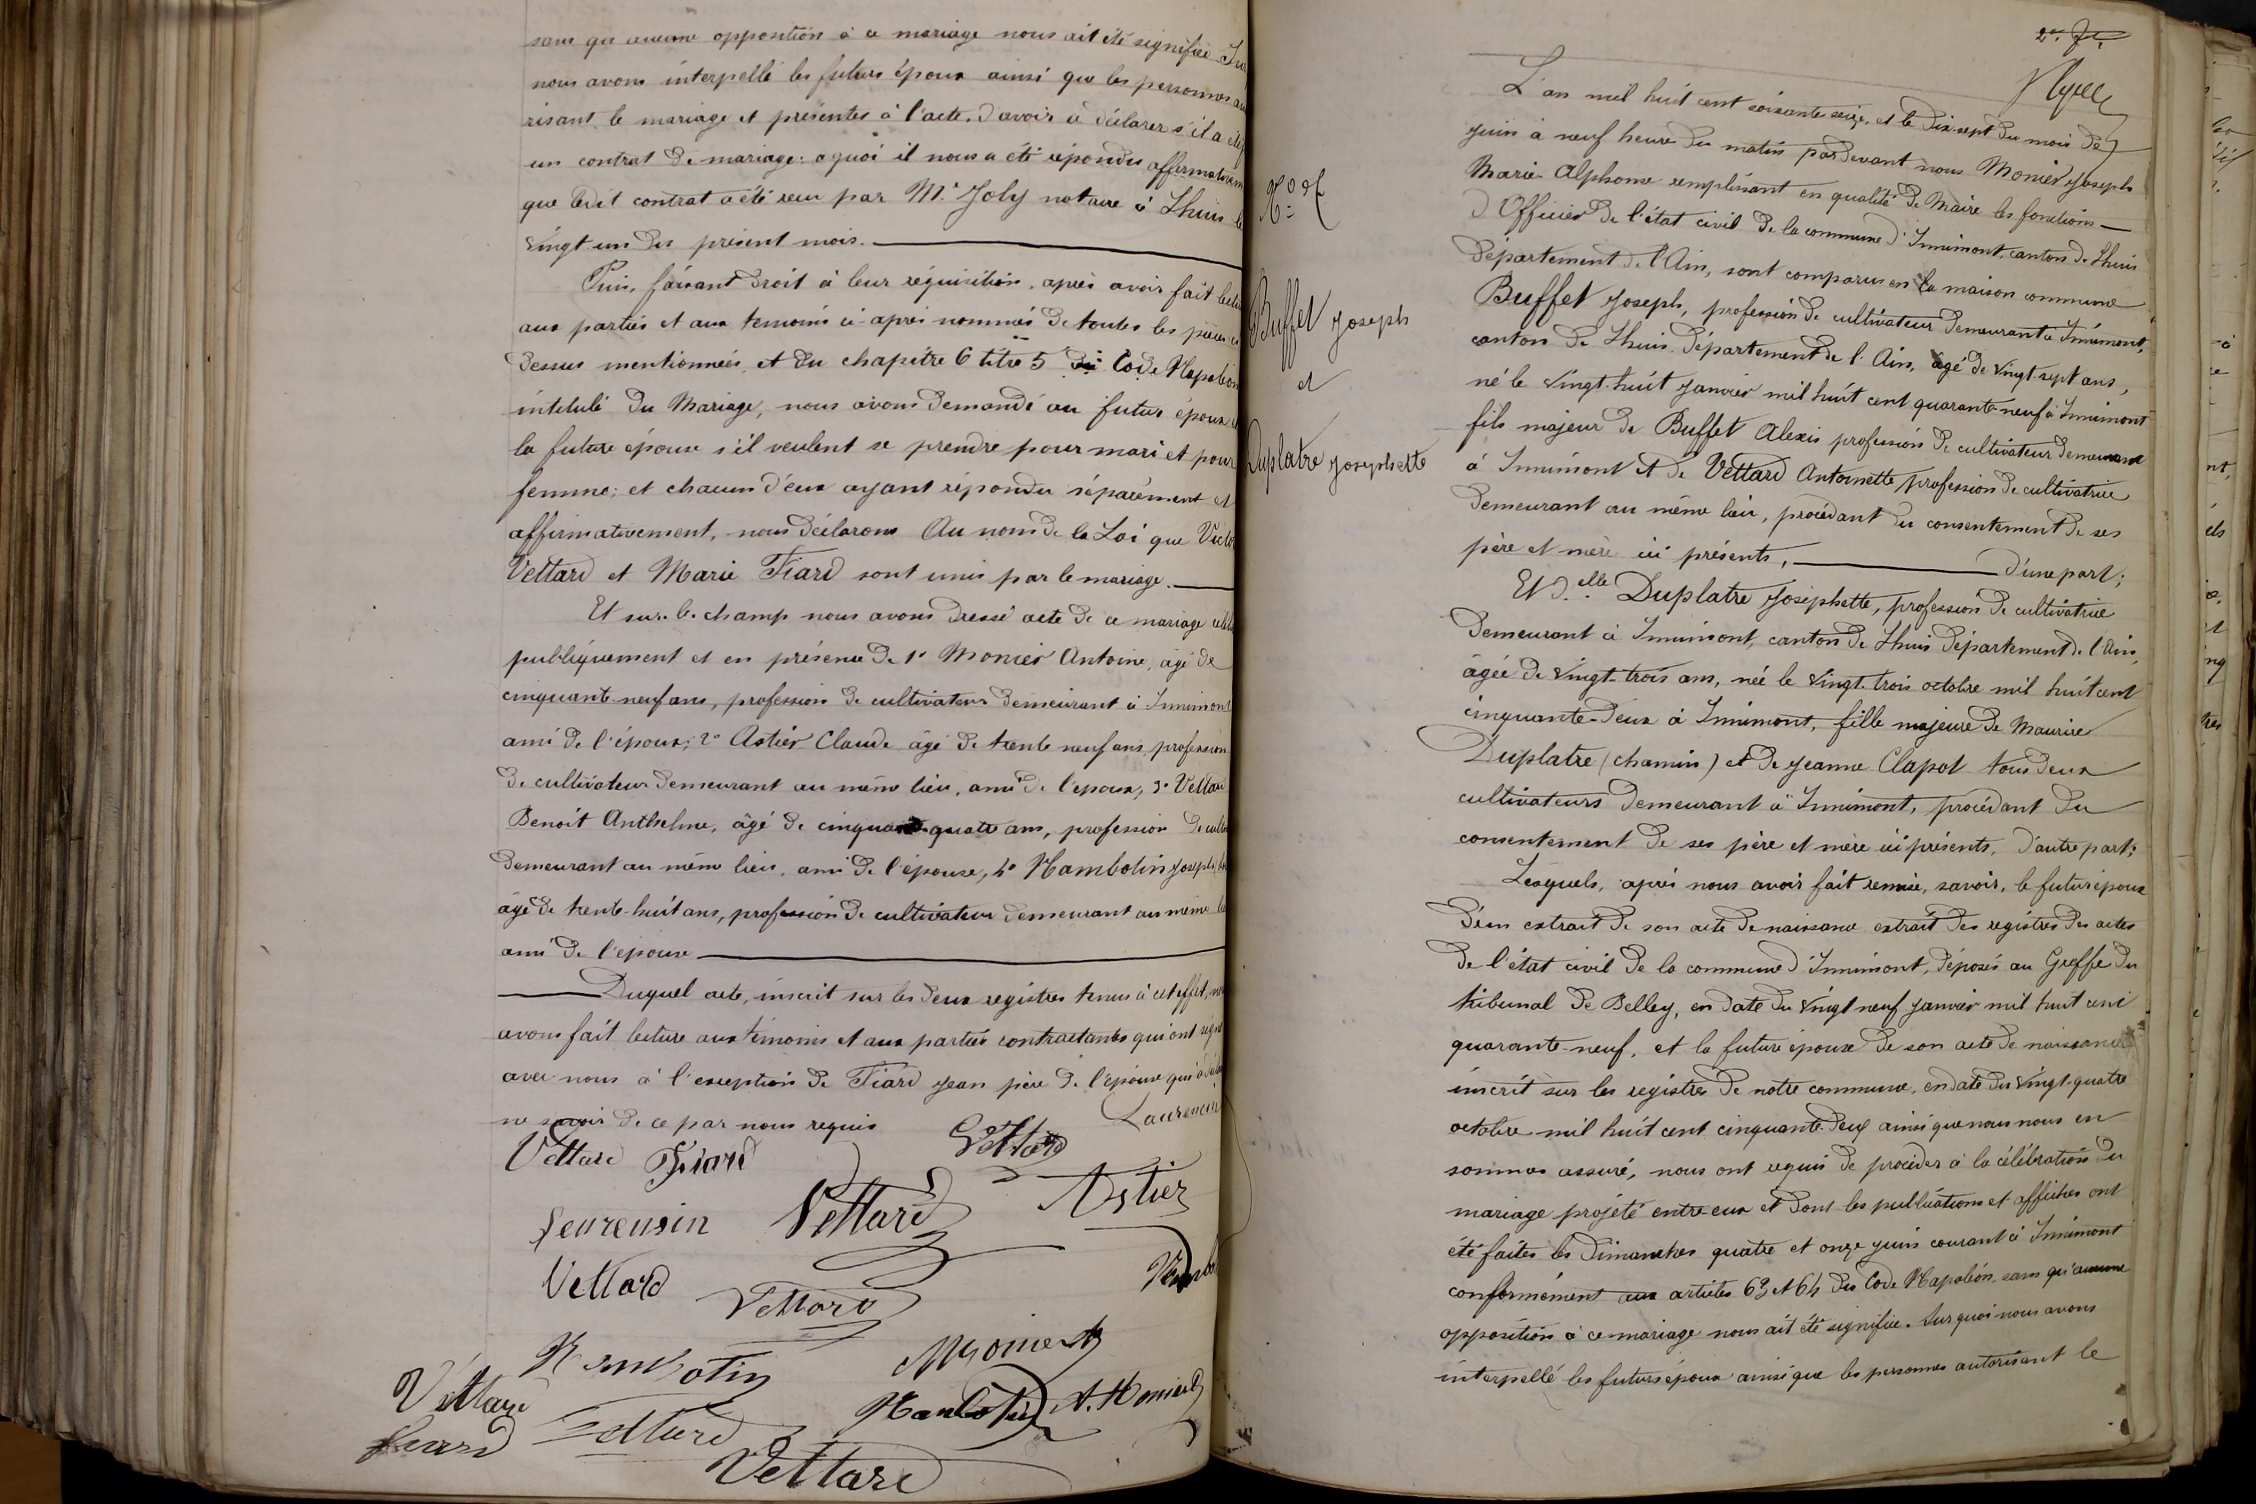 sans qu'aucune opposition à ce mariage nous ait été signifiée
nous avons interpellé les futurs époux ainsi que les personnes
risant le mariage et présentes à l'acte, d'avoir à déclarer s'il a été
un contrat de mariage: a quoi il nous a été répondu affirmativem
que ledit contrat a été recu par Me Joly notaire à Lhuis le
vingt un du présent mois.
Puis, faisant droit à leur réquisition, après avoir fait lectu
aux parties et aux temoins ci-après nommés de toutes les pièces ci
dessus mentionnées, et du chapitre 6 titre 5 du Code Napoléon
intitulé du Mariage, nous avons demandé au futur époux et
la future épouse s'il veulent se prendre pour mari et pour
femme; et chacun d'eux ayant répondu séparément et
affirmativement, nous déclarons Au nom de la Loi que Victor
Vettard et Marie Tiard sont unis par le mariage.
Et sur-le-champ nous avons dressé acte de ce mariage célébré
publiquement et en présence de 1° Monier Antoine, âgé de
cinquante-neuf ans, profession de cultivateur demeurant à Innimont
ami de l'époux; 2° Astier Claude âgé de trente neuf ans, profession
de cultivateur demeurant au même lieu, ami de l'époux, 3° Vettard
Benoît Anthelme, âgé de cinquante quatre ans, profession de culti
demeurant au même lieu, ami de l'épouse, 4° Nambotin Joseph
âgé de trente-huit ans, profession de cultivateur demeurant au même lieu
ami de l'épouse
Duquel acte, inscrit sur les deux registres tenus à cet effet, nous
avons fait lecture aux témoins et aux parties contractantes qui ont signé
avec nous à l'exception de Tiard Jean père de l'épouse qui a
ne savoir de ce par nous requis
Laurencin
Vettard Tiard Vettard
Leurensin Vettard Astier
Vettard Vettard
Nambotin Monier
Vettard Nambotin A. Monier
Vettard
Vettard
2e ft.
L'an mil huit cent soixante seize, et le dix sept du mois de
juin à neuf heure du matin pardevant nous Monier Joseph
Marie-Alphonse remplissant en qualité de Maire les fonctions
d'Officier de l'état civil de la commune d'Innimont, canton de Lhuis
département de l'Ain, sont comparus en la maison commune
Buffet Joseph, profession de cultivateur demeurant à Innimont,
canton de Lhuis département de l'Ain, âgé de vingt sept ans,
né le vingt-huit janvier mil huit cent quarante-neuf à Innimont
fils majeur de Buffet Alexis profession de cultivateur demeurant
à Innimont et de Vettard Antoinette profession de cultivatrice
demeurant au même lieu, procédant du consentement de ses
père et mère ici présents, d'une part;
Et d.elle Duplatre Josephette, profession de cultivatrice
demeurant à Innimont, canton de Lhuis département de l'Ain,
âgée de vingt-trois ans, née le vingt-trois octobre mil huit cent
cinquante-deux à Innimont, fille majeure de Maurice
Duplatre (chamin) et de Jeanne Clapot tous deux
cultivateurs demeurant à Innimont, procédant du
consentement de ses père et mère ici présents, d'autre part;
Lesquels, après nous avoir fait remise, savoir, le futur époux
d'un extrait de son acte de naissance extrait des registres des actes
de l'état civil de la commune d'Innimont, déposés au Greffe du
tribunal de Belley, en date du vingt neuf janvier mil huit cent
quarante-neuf, et la future épouse de son acte de naissance
inscrit sur les registres de notre commune, en date du vingt-quatre
octobre mil huit cent cinquante-deux ainsi que nous nous en
sommes assuré, nous ont requis de procéder à la célébration du
mariage projeté entre eux et dont les publications et affiches ont
été faites les dimanches quatre et onze juin courant à Innimont
conformément aux articles 63 et 64 du Code Napoléon, sans qu'aucune
opposition à ce mariage nous ait été signifiée. Sur quoi nous avons
interpellé les futurs époux ainsi que les personnes autorisant le
Buffet Joseph
et
Duplatre Josephette